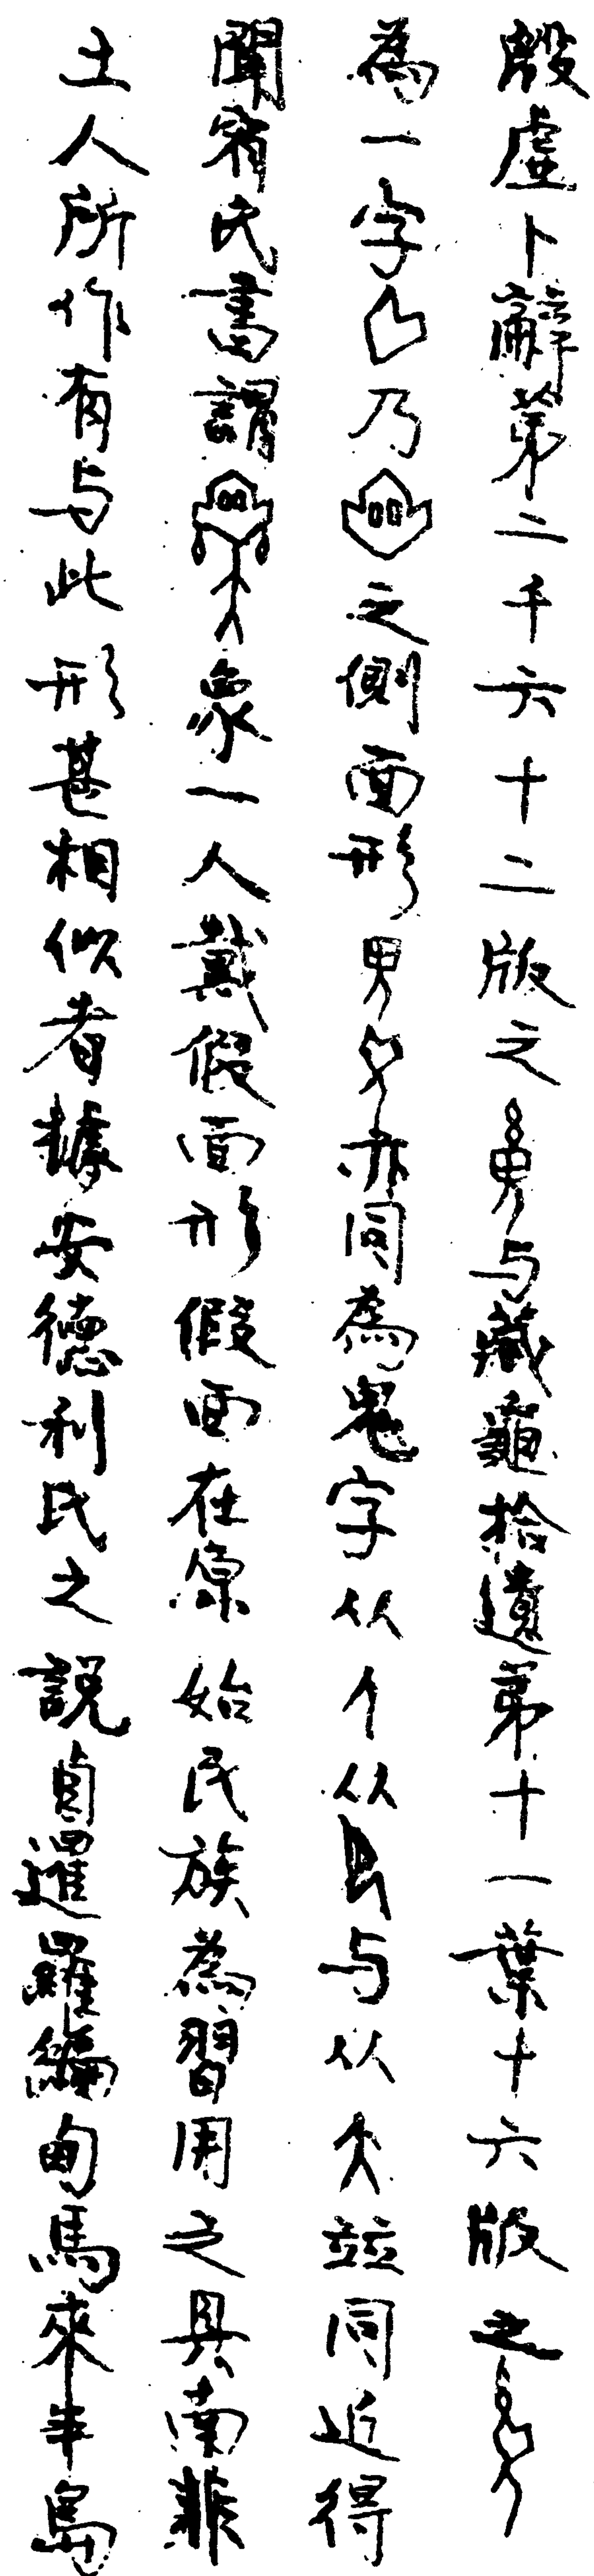 殷虛卜辭第二千六十二版之与藏龜拾遺第十一葉十六版之
為一字乃之側面形亦同為鬼字从人从与从大並同近得
聞宥氏書謂象一人戴假面形假面在原始民族為習用之具南非
土人所作有与此形甚相似者據安德利氏之說貞暹羅緬甸馬來半島